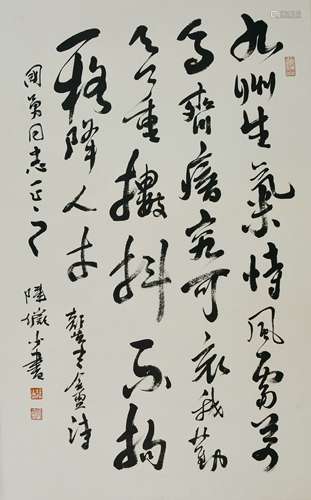 九州生氣恃風雷萬
馬齊瘖究可哀我勸
天公重擻抖不拘
一格降人才
盦詩
國勇同志正之
陸儼少書